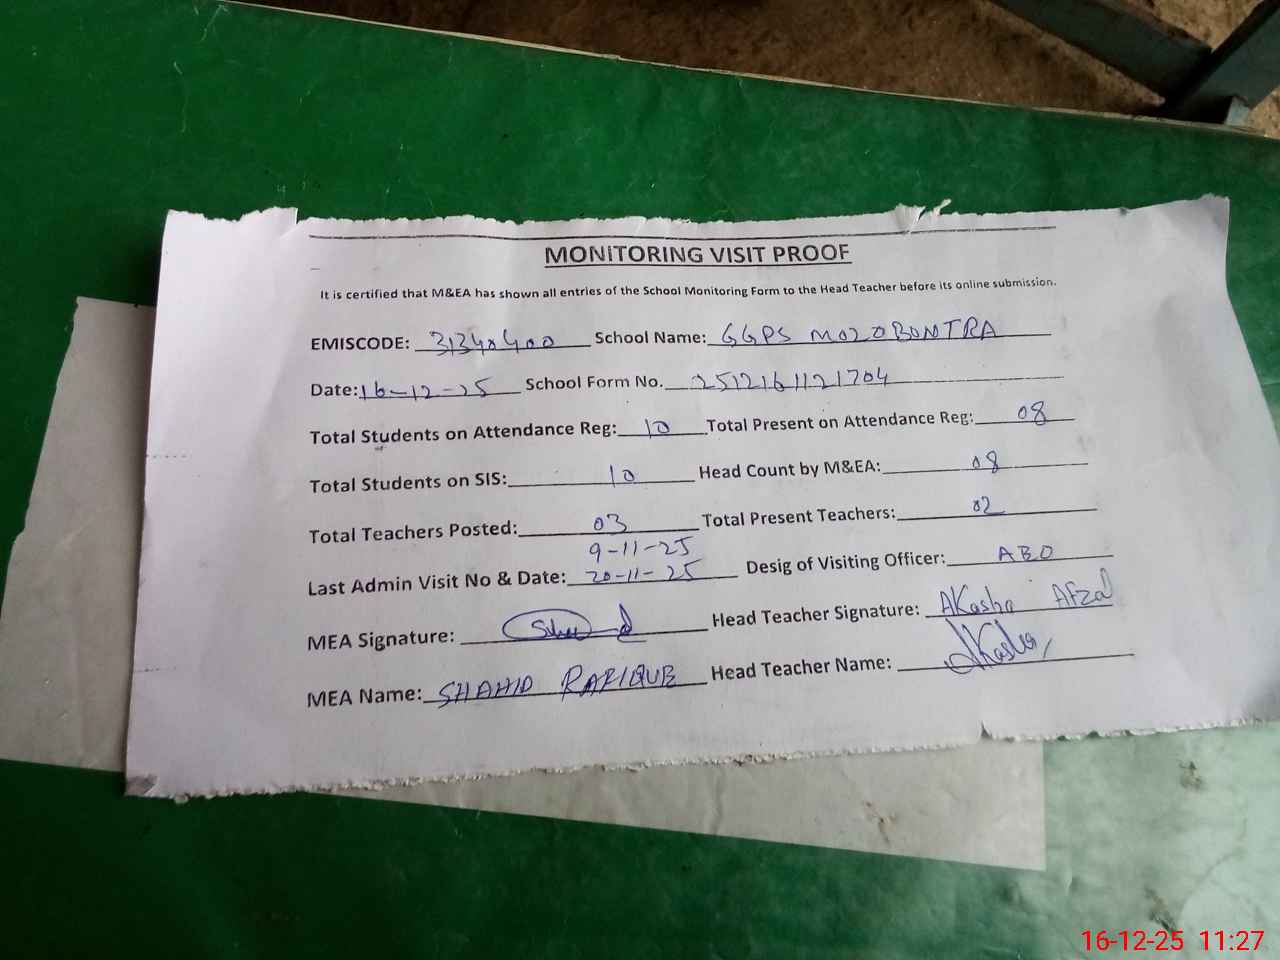 MONITORING VISIT PROOF
It is certified that M&EA has shown all entries of the School Monitoring Form to the Head Teacher before its online submission.
EMISCODE: 31340400 School Name: GGPS MOZO BONTRA
Date: 16-12-25 School Form No. 2512161121704
Total Students on Attendance Reg: 10 Total Present on Attendance Reg: 08
Total Students on SIS: 10 Head Count by M&EA: 08
Total Teachers Posted: 03 Total Present Teachers: 02
9-11-25
Last Admin Visit No & Date: 20-11-25 Desig of Visiting Officer: AEO
MEA Signature: Head Teacher Signature: AKasha Afzal
MEA Name: SHAHID RAFIQUE Head Teacher Name: AKasha
16-12-25 11:27